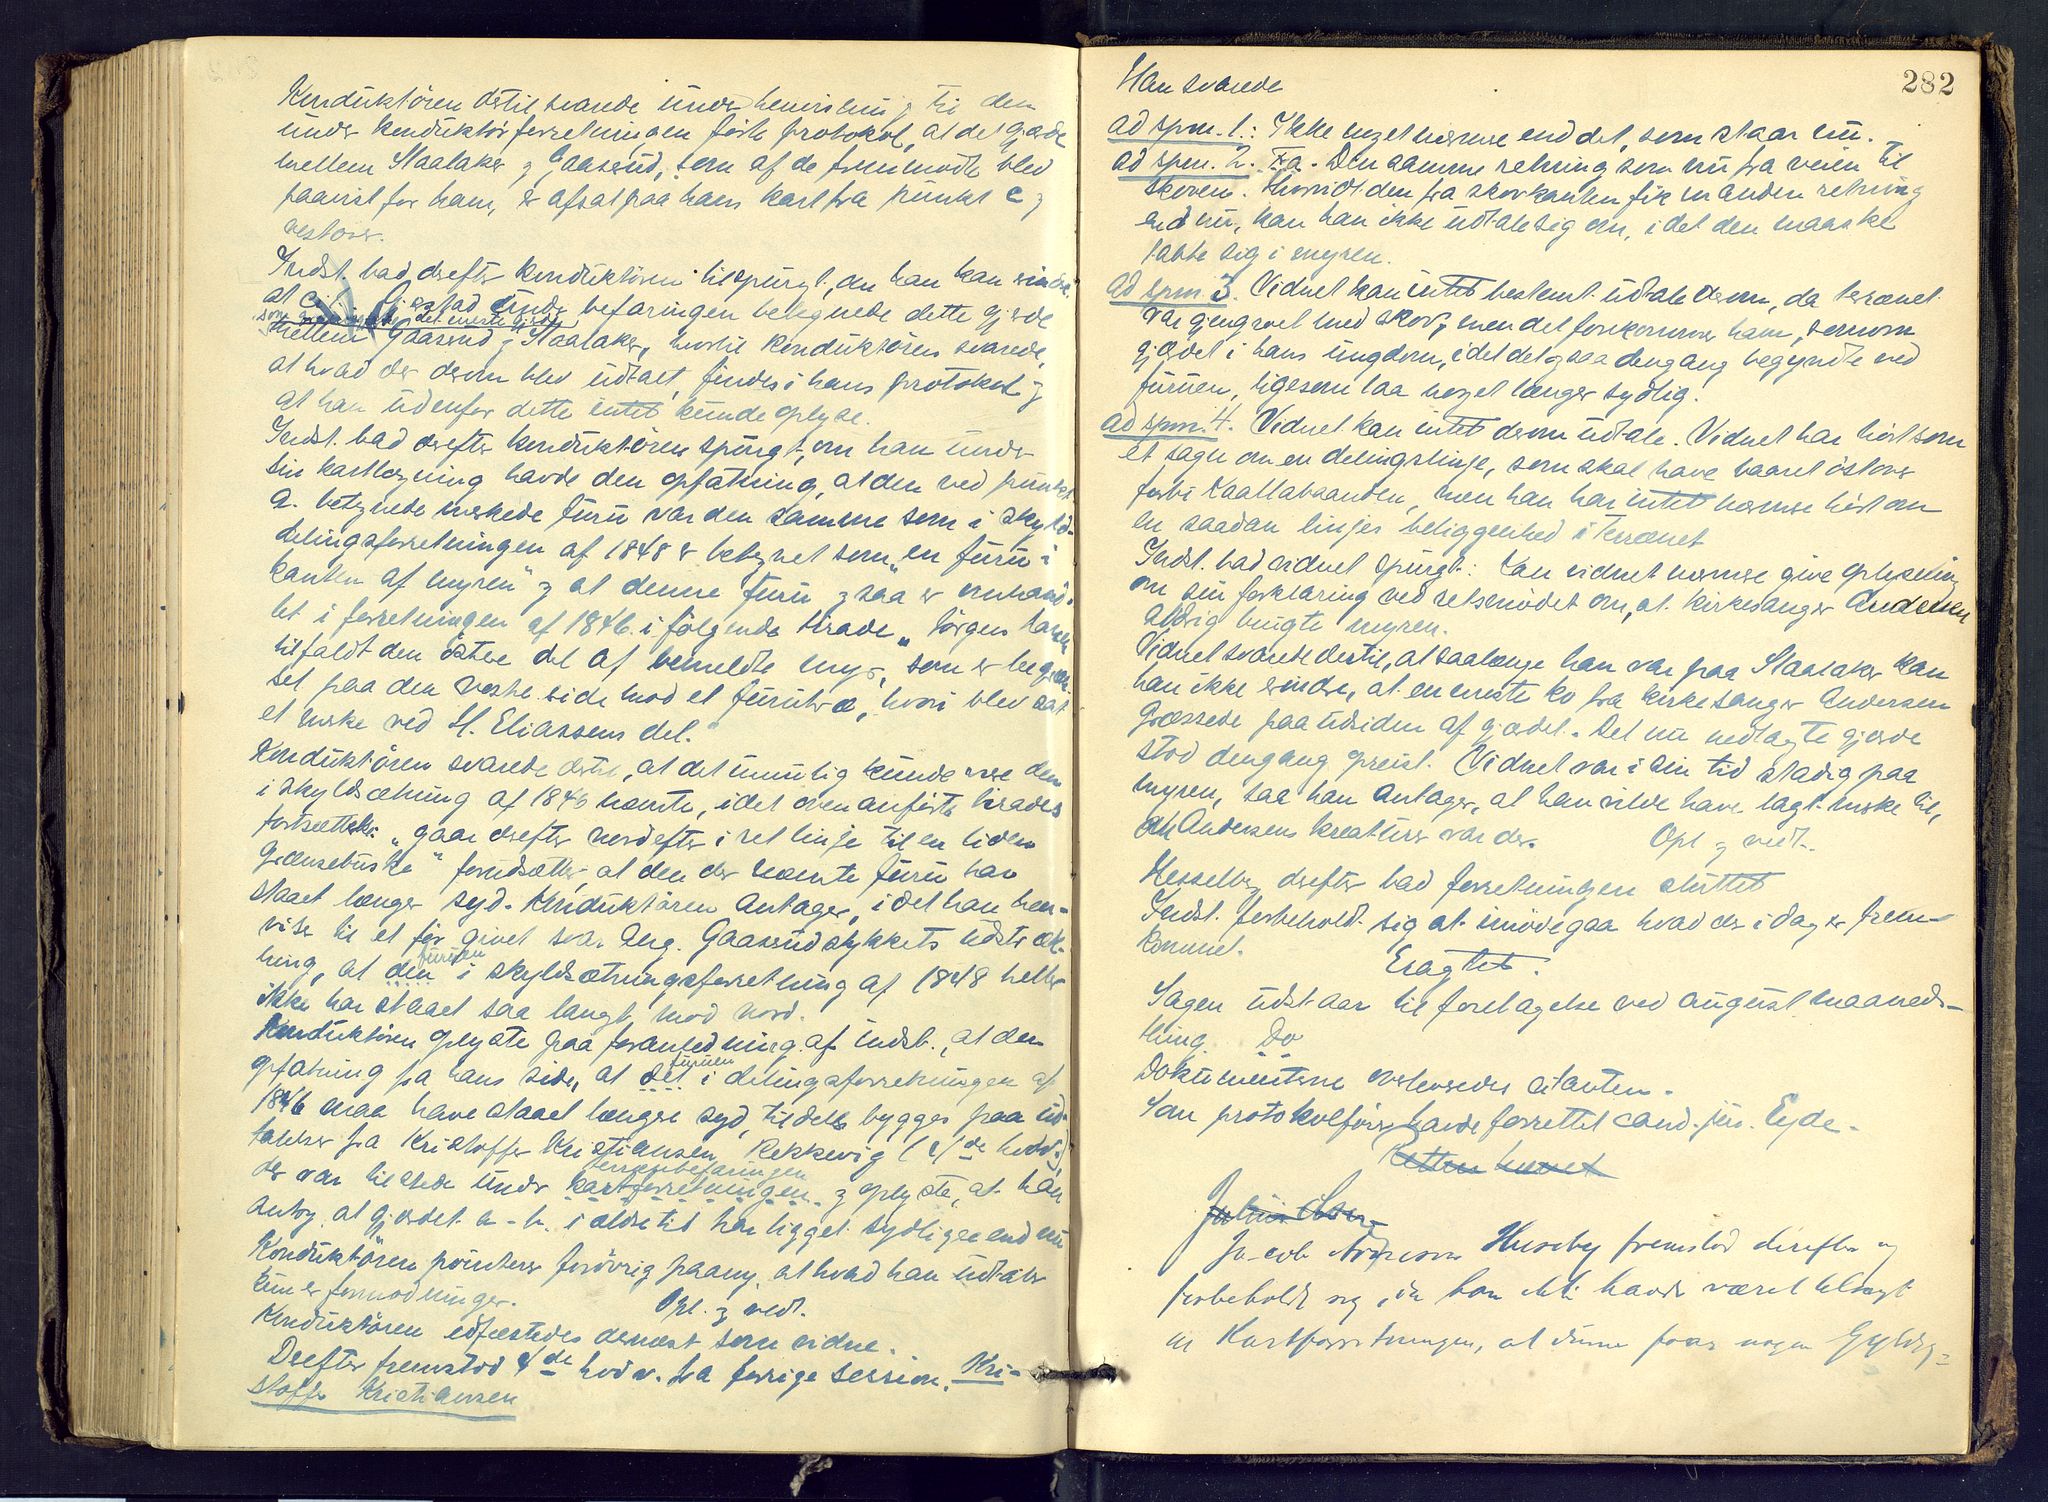 Konduktören dertil svarede under henvisning til den
under konduktörforretningen förte protokol, at det gjærde
mellem Staalaker og Gaasrud, som af de fremmödte blev
paavist for ham, er afsat paa hans kart fra punkt e og
vestover.
Indst. bad derefter konduktören tilspurgt, om han kan erindre,
at Gjestad under befaringen betegnede dette gjerde
mellem Gaasrud og Staalaker, hvortil konduktören svarede,
at hvad der derom blev udtalt, findes i hans protokol og
at han udenfor dette intet kunde oplyse.
Indst. bad derefter konduktören spurgt, om han under
sin kartlægning havde den opfatning, at den ved punkt
a. betegnede merkede furu var den samme som i skyld-
delingsforretningen af 1848 er betegnet som "en furu i
kanten af myren" og at denne furu ogsaa er omhand-
let i forretningen af 1846 i fölgende tirade "Jörgen Hansen
tilfaldt den östre del af bemeldte myr, som er begræn-
set paa den vestre side mod et furutræ, hvori blev sat
et merke ved H. Eliassens del."
Konduktören svarede dertil, at det umulig kunde være den
i skyldsætning af 1846 nævnte, idet ovenanförte tirades
fortsættelse: "gaar derefter nordefter i ret linje til en liden
Grænsebuske" forudsætter, at den der nævnte furu har
staaet længer syd. Konduktören antager, idet han hen-
viser til et för givet svar ang. Gaasrudstykkets udstræk-
ning, at den furuen i skyldsætningsforretning af 1848 heller
ikke har staaet saa langt mod nord.
Konduktören oplyste paa foranledning af indst., at den
opfatning fra hans side, at det furuen i delingsforretningen af
1846 maa have staaet længere syd, tildels bygges paa ud-
talelser fra Kristoffer Kristiansen Rekkevig (4de hovedv.)
der var tilstede under kartforretningen terrænbefaringen og oplyste, at han
antog, at gjærdet a-b. i ældre tid har ligget sydligere end nu
Konduktören pointerer forövrig paany, at hvad han udtaler
kun er formodninger. Opl. og vedt.
Konduktören edfæstedes dernæst som vidne.
Derefter fremstod 4de hovedv. fra forrige session, Kri-
stoffer Kristiansen

282
Han svarede
ad spm. 1.: Ikke noget nærmere end det, som staar nu.
ad spm. 2. Ja. Den samme retning som nu fra veien til
skoven. Hvorvidt den fra skovkanten fik en anden retning
end nu, kan han ikke udtale sig om, idet den maaske
tabte sig i myren.
ad spm 3. Vidnet kan intet bestemt udtale derom, da terrænet
var gjengroet med skov, men det forekommer ham, som om
gjærdet i hans ungdom, idet det ogsaa dengang begyndte ved
furuen, ligesom laa noget længer sydlig.
ad spm. 4. Vidnet kan intet derom udtale. Vidnet har hört som
et sagn om en delingslinje, som skal have baaret östover
forbi Kaallabaanden, men han har intet nærmere hört om
en saadan linjes beliggenhed i terrænet
Indst. bad vidnet spurgt: Kan vidnet nærmere give oplysning
om sin forklaring ved retsmödet om, at kirkesanger Andersen
aldrig brugte myren.
Vidnet svarede dertil, at saalænge han var paa Staalaker kan
han ikke erindre, at en eneste ko fra kirkesanger Andersen
græssede paa udsiden af gjærdet. Det nu nedlagte gjerde
stod dengang opreist. Vidnet var i sin tid stadig paa
myren, saa han antager, at han vilde have lagt merke til,
om Andersens kreaturer var der. Opl og vedt.
Hesselberg derefter bad forretningen sluttet
Indst. forbeholdt sig at imödegaa hvad der i dag er frem-
kommet.
Eragtet:
Sagen udstaar til foretagelse ved august maaneds-
thing. Do
Dokumenterne overleveredes citanten.
Som protokolförer havde forrettet cand. jur. Eyde.
Retten hævet
Jacob Andersen Huseby fremstod derefter og
forbeholdt sig, da han ikke havde været tilsagt
til Kartforretningen, at denne faar nogen Gyldig=